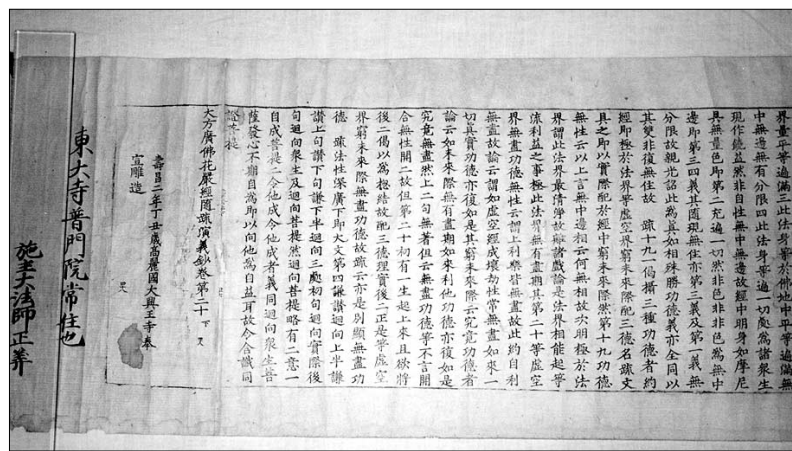 界量平等遍滿三此法身等於佛地中平等遍滿無
中無邊無有分限四此法身等遍一切處為諸衆生
現作饒益然非自性無中無邊故經中明身如摩尼
具無量色即第二充遍一切然非色非非色為無中
邊即第三四義其隨現無住亦第三義及第義無
分限故親光詺此為真如相殊勝功德義亦全同以
其雙非復無住故 疏十九一偈攝三種功德者約
經即極於法界等虛空界窮未來際配三德名疏文
具之即以實際配於經中窮未來際然第十九功德
無性云以上言無中邊相云何無相故次明極於法
界謂此法界最清淨故離諸戲論是法界相能起等
流利益之事極此法界無有盡期其第二十等虛空
界無盡功德無性云謂上利樂皆無盡故此約自利
無盡故論云謂如虛空經成壞劫性常無盡如來一
切真實功德亦復如是其窮未來際云究竟功德者
論云如未來際無有盡期如來利他功德亦復如是
究竟無盡然上二句無者但云無盡功德等不言開
合無性開二故但第二十初有一生起上來且欲將
後二偈以為摠結故配三德理實後二正是等虛空
界窮未來際無盡功德故疏云亦是別顯無盡功
德 疏法性深廣下即大文第四謙讃迴向上半謙
讃上句讃下句謙下半迴向三處初句迴向實際後
句迴向衆生及迴向菩提然迴向菩提略有二意一
自成菩提二令他成令他成者義同迴向衆生菩
薩發心不期自為即以向他為自益耳故令含識同
證菩提
大方廣佛花嚴經隨疏演義鈔卷第二十 下
壽昌二年丁丑歲高麗國大興王寺奉
宣雕造
東大寺普門院常住也
施主大法師正